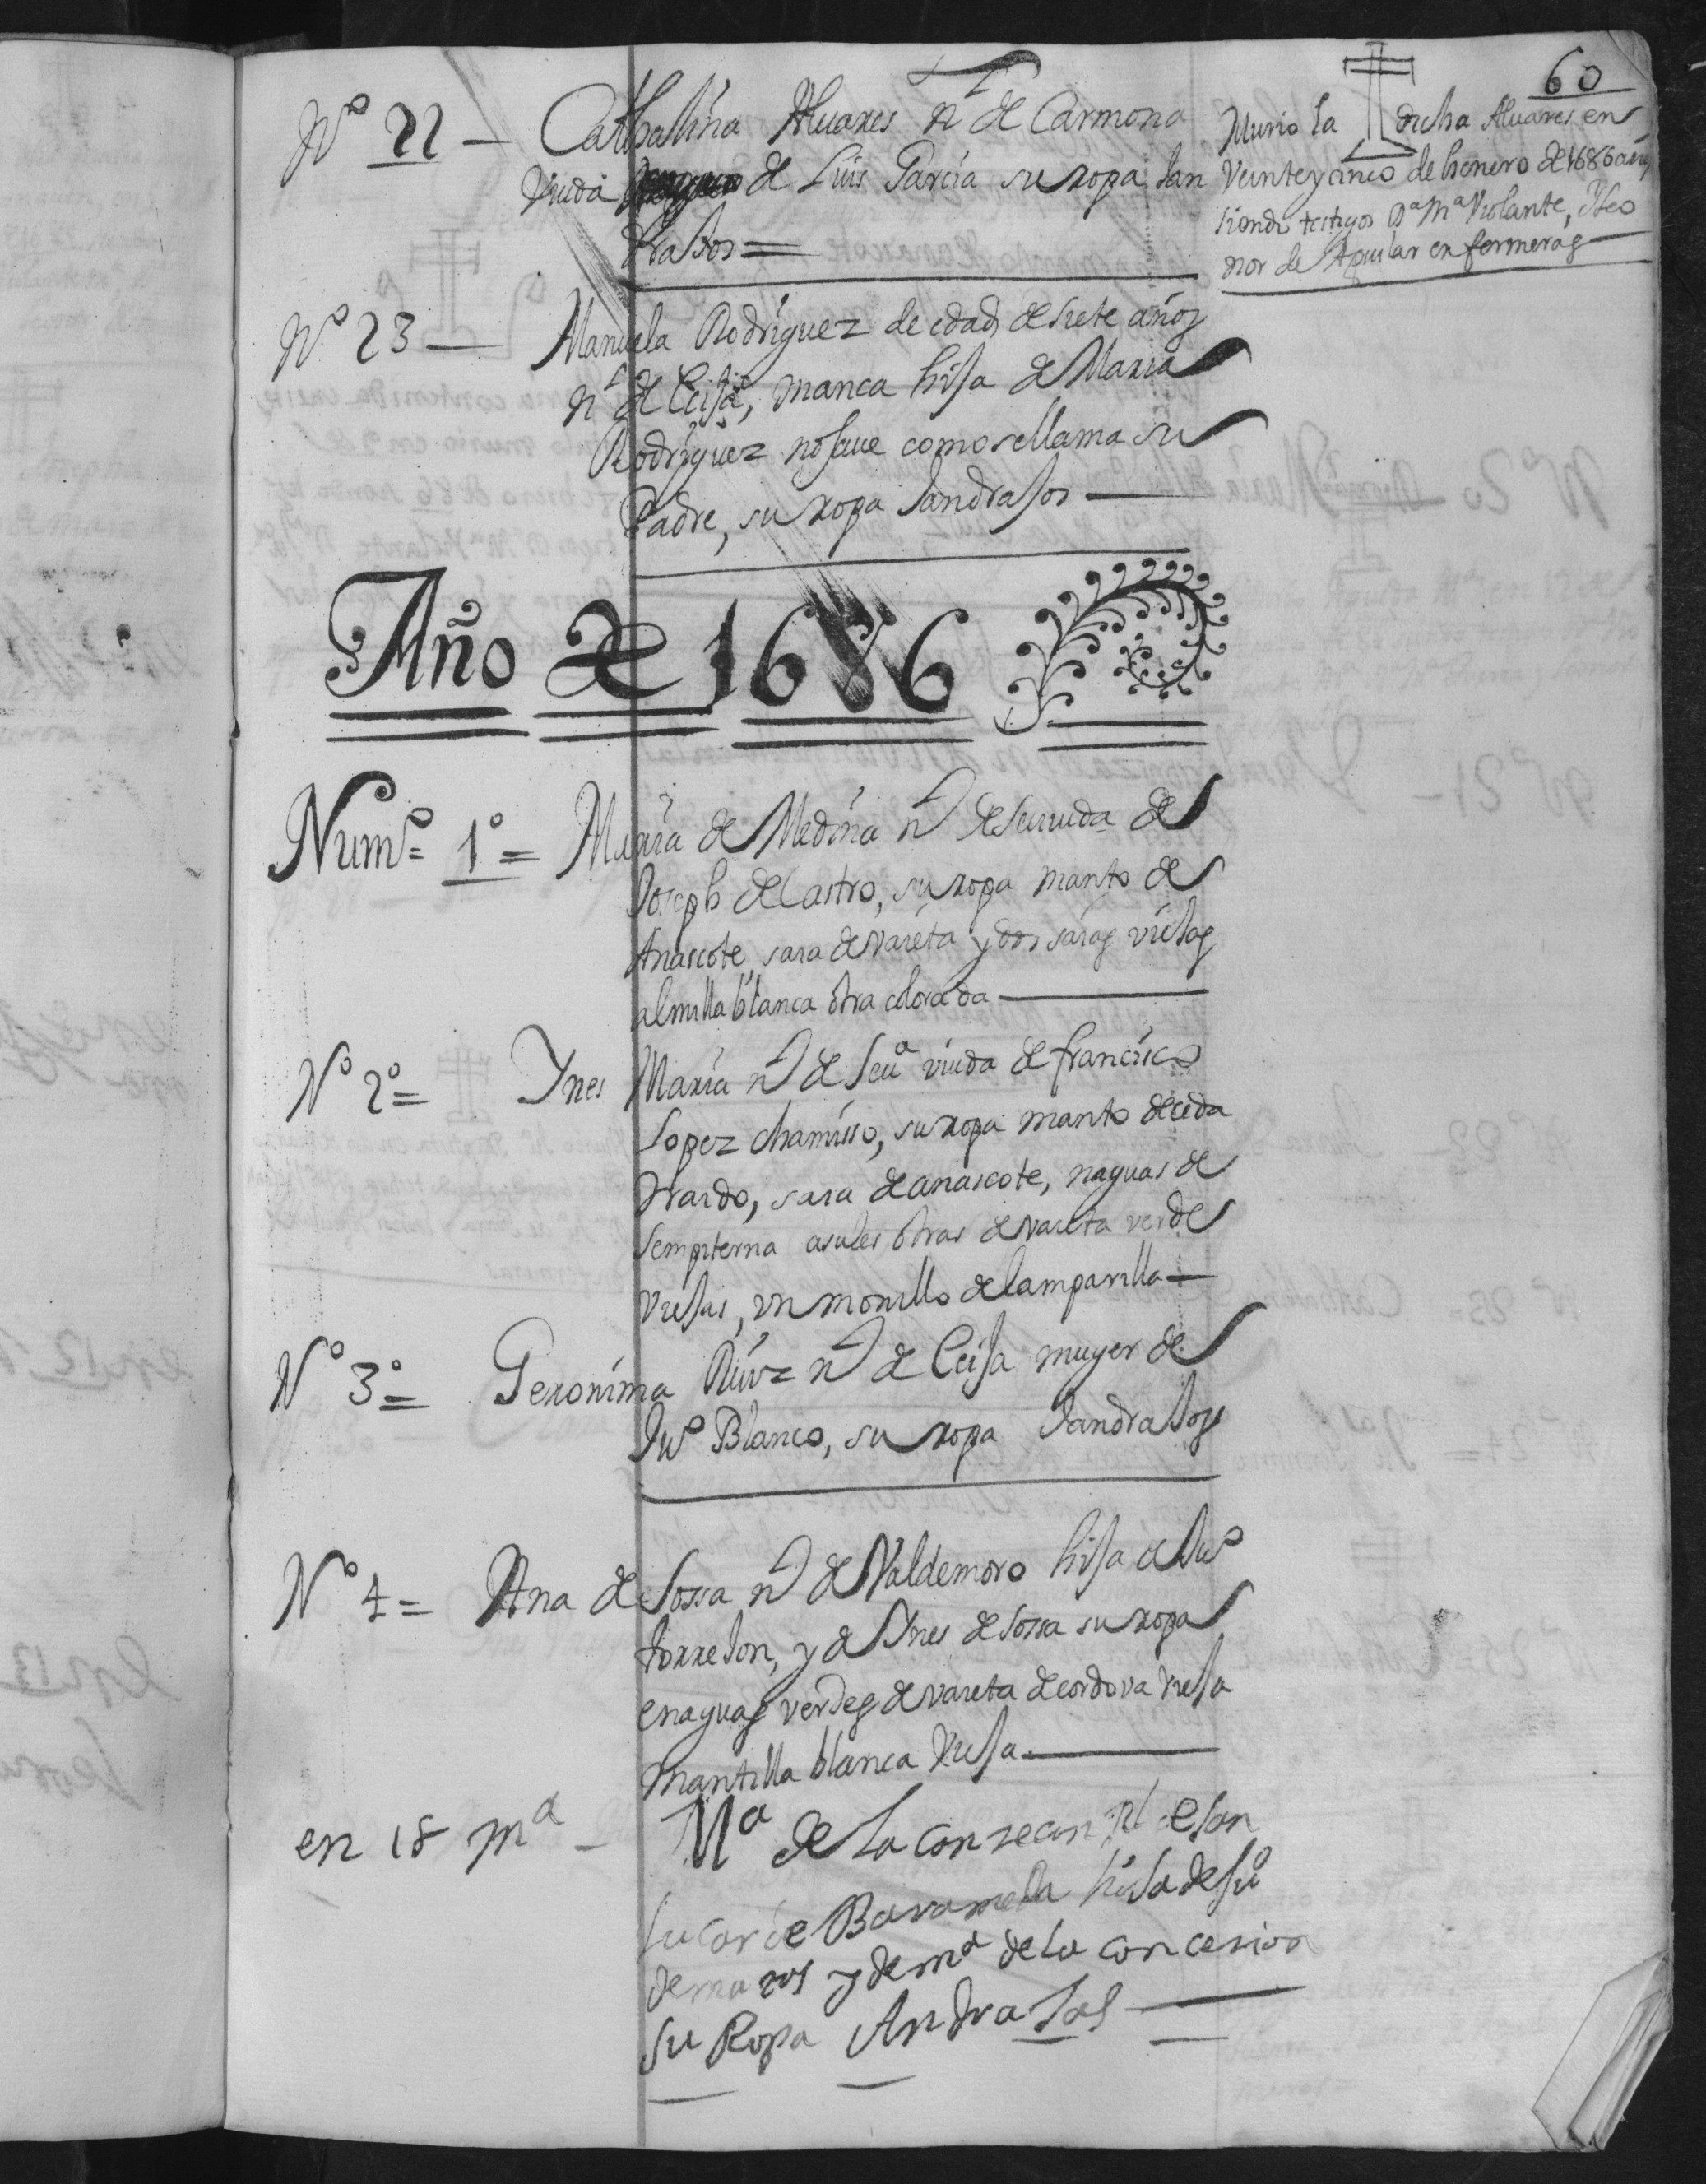 60
Nº 22 — Cathalina Aluares nl de Carmona
viuda de Luis Garcia su ropa san
drasos =
Murio la dicha Aluares en
Veinte y cinco de henero de 1686 años
siendo testigos Dª Mª Violante, Y Leo
nor de Aguilar enfermeras —
Nº 23 — Manuela Rodriguez de edad de siete años
nl de Ecija, manca hija de Maria
Rodriguez no saue como se llama su
Padre, su ropa sandrasos —
Año de 1686
Numº = 1º = Maria de Medina nl de Seu viuda de
Joseph de Castro, su ropa manto de
Anascote, saia de vaieta y dos saias viejas
almilla blanca otra colorada —
Nº 2º = Ynes Maria nl de Seuª viuda de francisco
Lopez chamisso, su ropa manto de ceda
Pardo, saia de anascote, naguas de
sempiterna asules otras de vaieta verde
viejas, un monillo de lamparilla —
Nº 3º = Geronima Ruiz nl de Ecija muger de
Juº Blanco, su ropa sandrasos
Nº 4 = Ana de Sossa nl de Valdemoro hija de Juº
torrejon, y de Ynes de Sossa su ropa
enaguas verdes de vaieta de cordova vieja
mantilla blanca vieja —
en 18 mª — Mª de la consecion nl de san
lucar de Barameda hija de Juº
de maros y de mª de la concesion
su Ropa Andrasos —